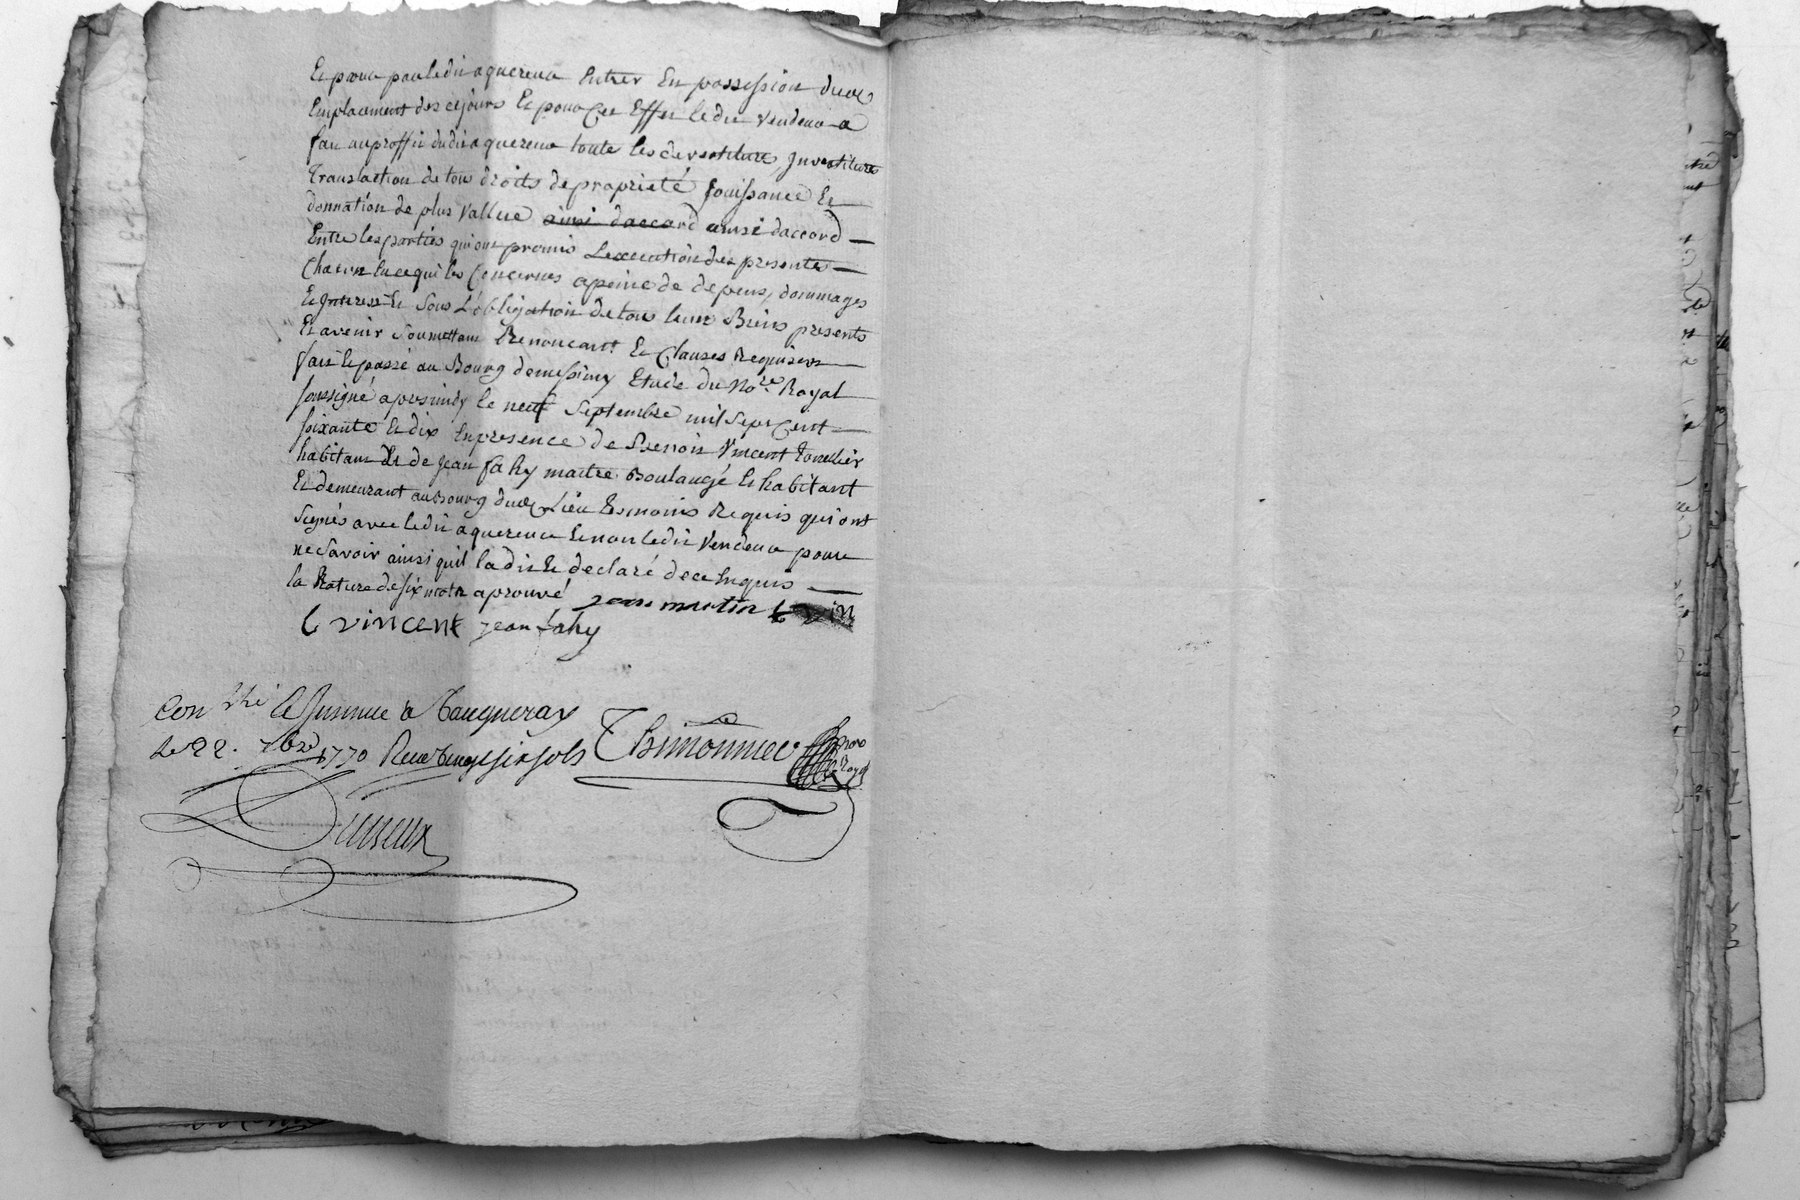 Et poura par ledit aquereur Entrer En possession dudt
Emplacement des cejours Et pour Cet Effet ledit Vendeur a
fait au proffit dudit aquereur toute les devestiture, Investiture
Translation de tous droits de proprieté Jouissance Et
donnation de plus Vallue ainsi daccord ainsi daccord
Entre les parties qui ont promis L'execution des presentes
Chacun En ce qui les Concernes a peine de depens, dommages
Et Interest Et Sous L'obligation de tous leurs Biens presents
Et avenir Soumettant Renoncant Et Clauses Requises
fait Et passé au Bourg de messimy Etude du No.re Royal
soussigné apres midy le neuf Septembre mil Sept Cent
soixante Et dix En presence de Benoit Vincent Tonellier
habitant Et de Jean fahy maitre Boulangé Et habitant
Et demeurant au Bourg dudt Lieu Temoins Requis qui ont
Signés avec ledit aquereur Et non ledit Vendeur pour
ne Savoir ainsi quil la dit Et declaré de ce Enquis
la Rature de six mots aprouvé jean martin
b vincent jean fahy
Con.llé Et Insinué à Vaugneray
Le 22. 7bre 1770 Reçu Vingt six sols Thimonnier no.re Royal